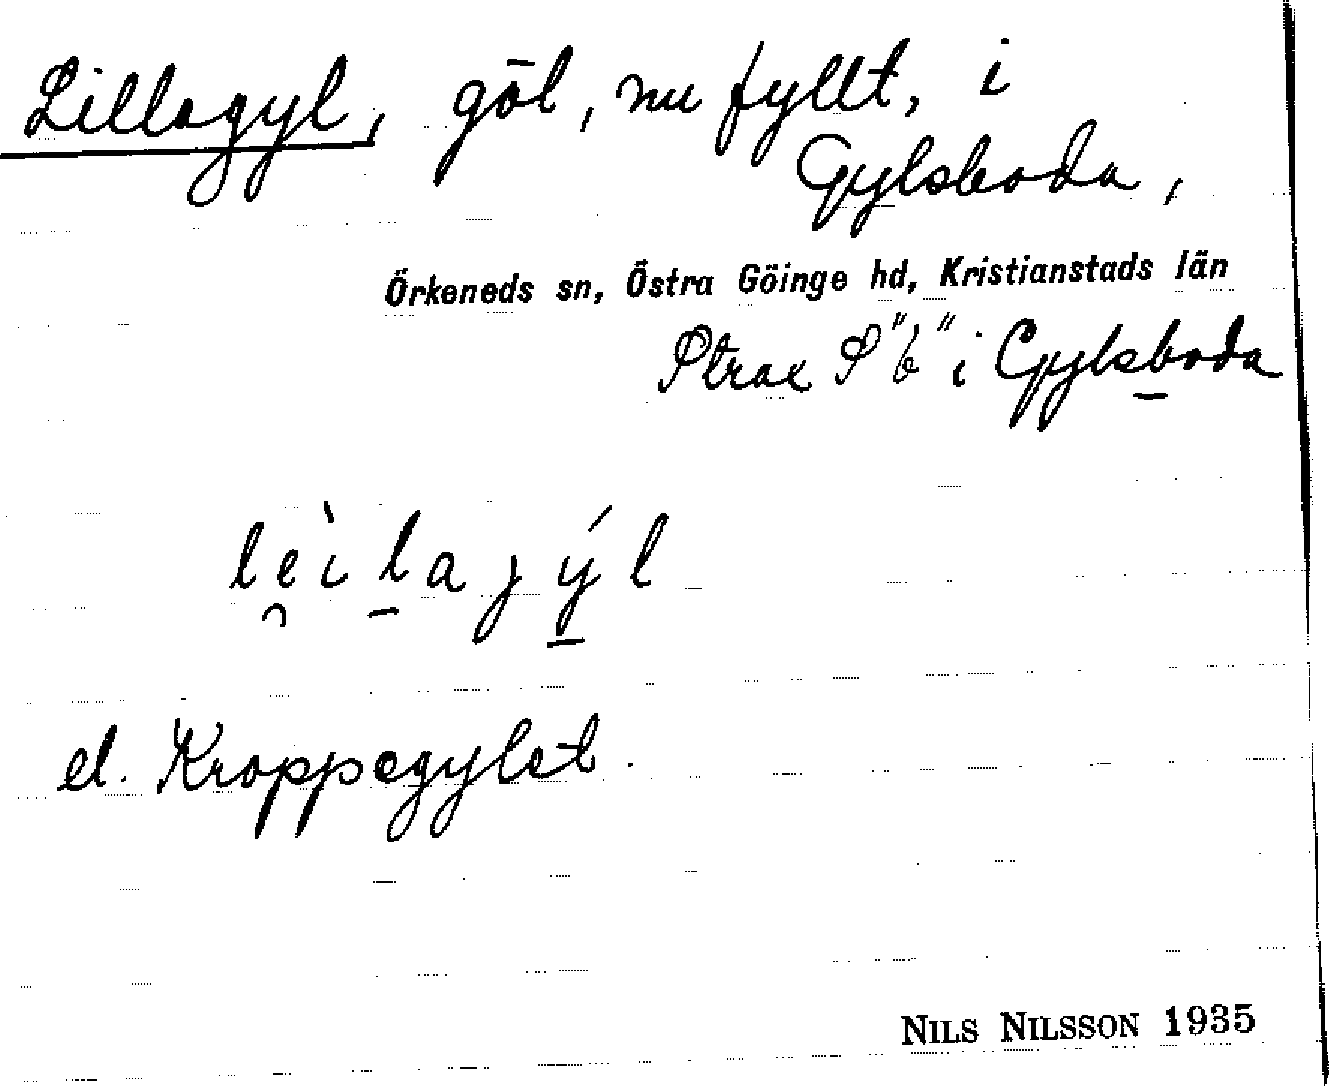 Lillagyl, göl, nu fyllt, i
Gylsboda,
Örkeneds sn, Östra Göinge hd, Kristianstads län
Strax S "b" i Gylsboda
le̯ìl̠ajý̠l
el. Kroppegylet.
NILS NILSSON 1935